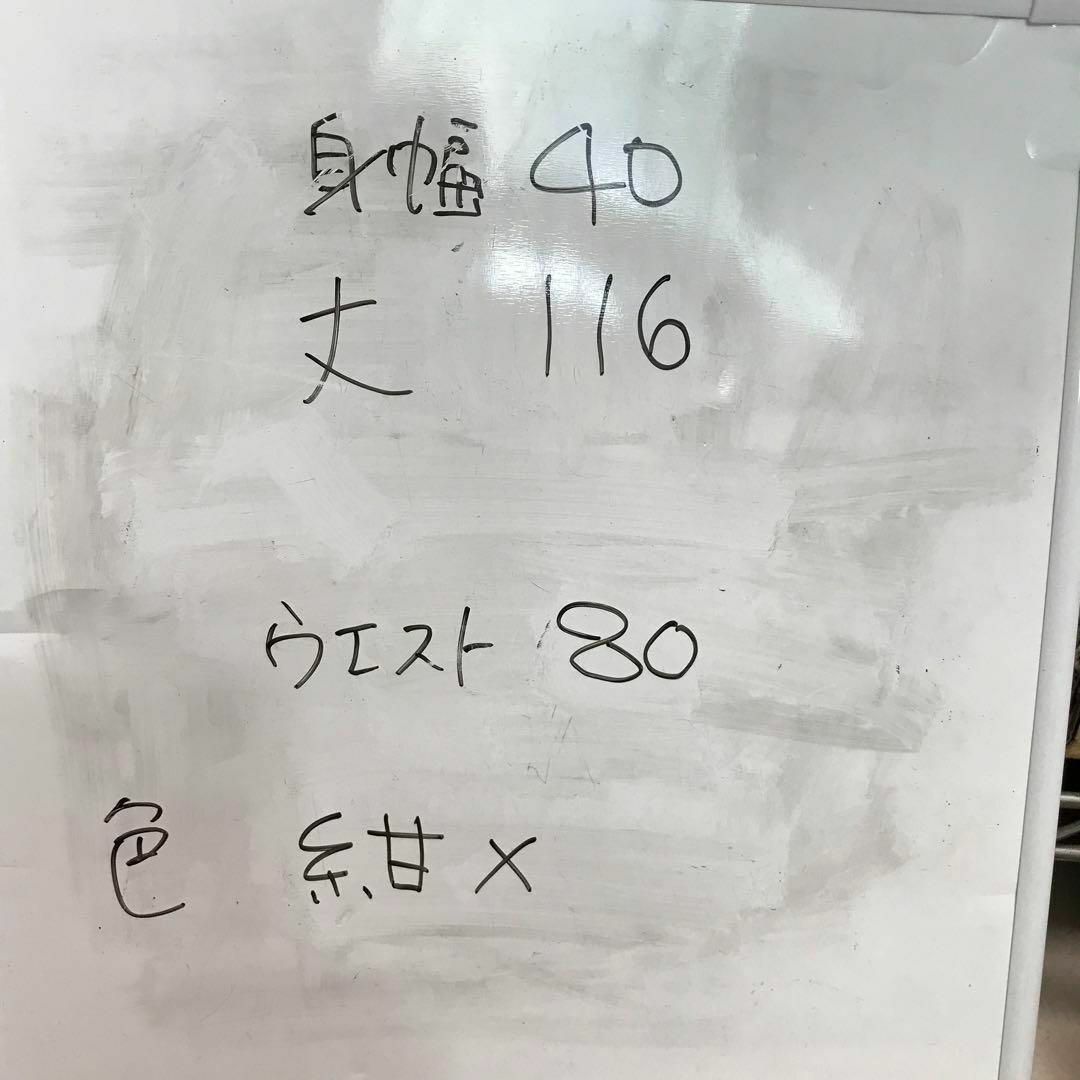 身幅 40
丈 116
ウエスト 80
色 紺×